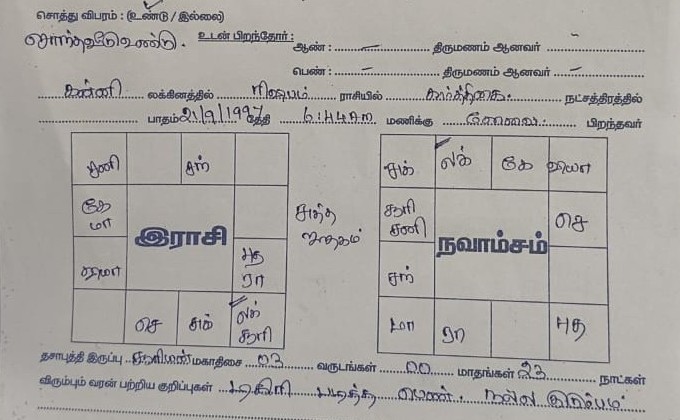 சொத்து விபரம் : (உண்டு / இல்லை)
சொந்தவீடு உண்டு. உடன் பிறந்தோர் : ஆண் : – திருமணம் ஆனவர் –
பெண் : – திருமணம் ஆனவர் –
கன்னி லக்கினத்தில் ரிஷபம் ராசியில் கார்த்திகை. நட்சத்திரத்தில்
பாதம் 21/9/1997 தேதி 6:44AM மணிக்கு பிறந்தவர்
சனி சந்
கே
மா
இராசி
வியா
புத
ரா
செ சுக் லக்
சூரி
சுத்த
ஜாதகம்
சுக் லக் கே வியா
சூரி
சனி
செ
நவாம்சம்
சந்
மா ரா புத
தசாபுத்தி இருப்பு சூரியன் மகாதிசை 03 வருடங்கள் 00 மாதங்கள் 23 நாட்கள்
விரும்பும் வரன் பற்றிய குறிப்புகள் டிகிரி படித்த பெண். நல்ல குடும்பம்